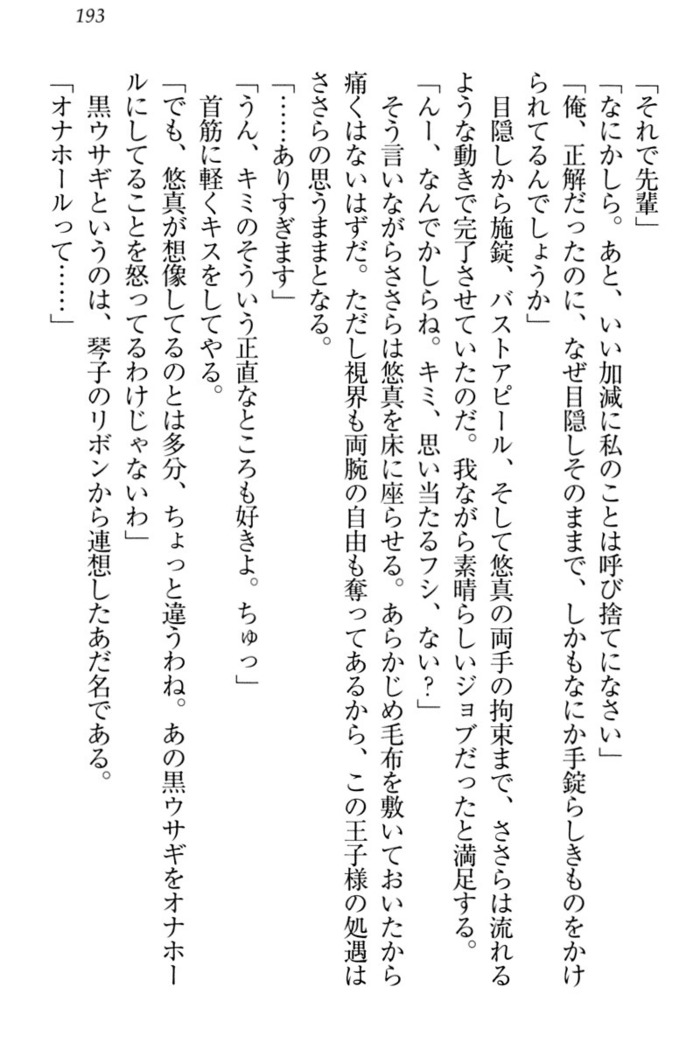 193
「それで先輩」
「なにかしら。あと、いい加減に私のことは呼び捨てになさい」
「俺、正解だったのに、なぜ目隠しそのままで、しかもなにか手錠らしきものをかけ
られてるんでしょうか」
　目隠しから施錠、バストアピール、そして悠真の両手の拘束まで、ささらは流れる
ような動きで完了させていたのだ。我ながら素晴らしいジョブだったと満足する。
「んー、なんでかしらね。キミ、思い当たるフシ、ない？」
　そう言いながらささらは悠真を床に座らせる。あらかじめ毛布を敷いておいたから
痛くはないはずだ。ただし視界も両腕の自由も奪ってあるから、この王子様の処遇は
ささらの思うままとなる。
「……ありすぎます」
「うん、キミのそういう正直なところも好きよ。ちゅっ」
　首筋に軽くキスをしてやる。
「でも、悠真が想像してるのとは多分、ちょっと違うわね。あの黒ウサギをオナホー
ルにしてることを怒ってるわけじゃないわ」
　黒ウサギというのは、琴子のリボンから連想したあだ名である。
「オナホールって……」